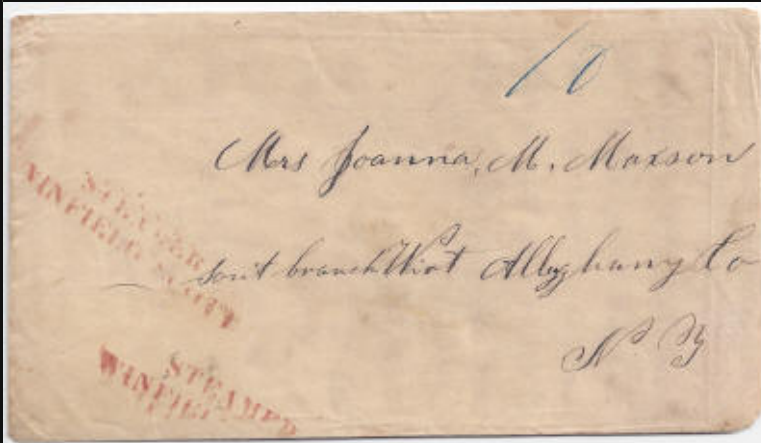 10
Mrs Joanna, M. Maxson
branch Wirt Alleghany Co
N. Y
STEAMER
WINFIELD SCOTT
STEAMER
WINFIEL